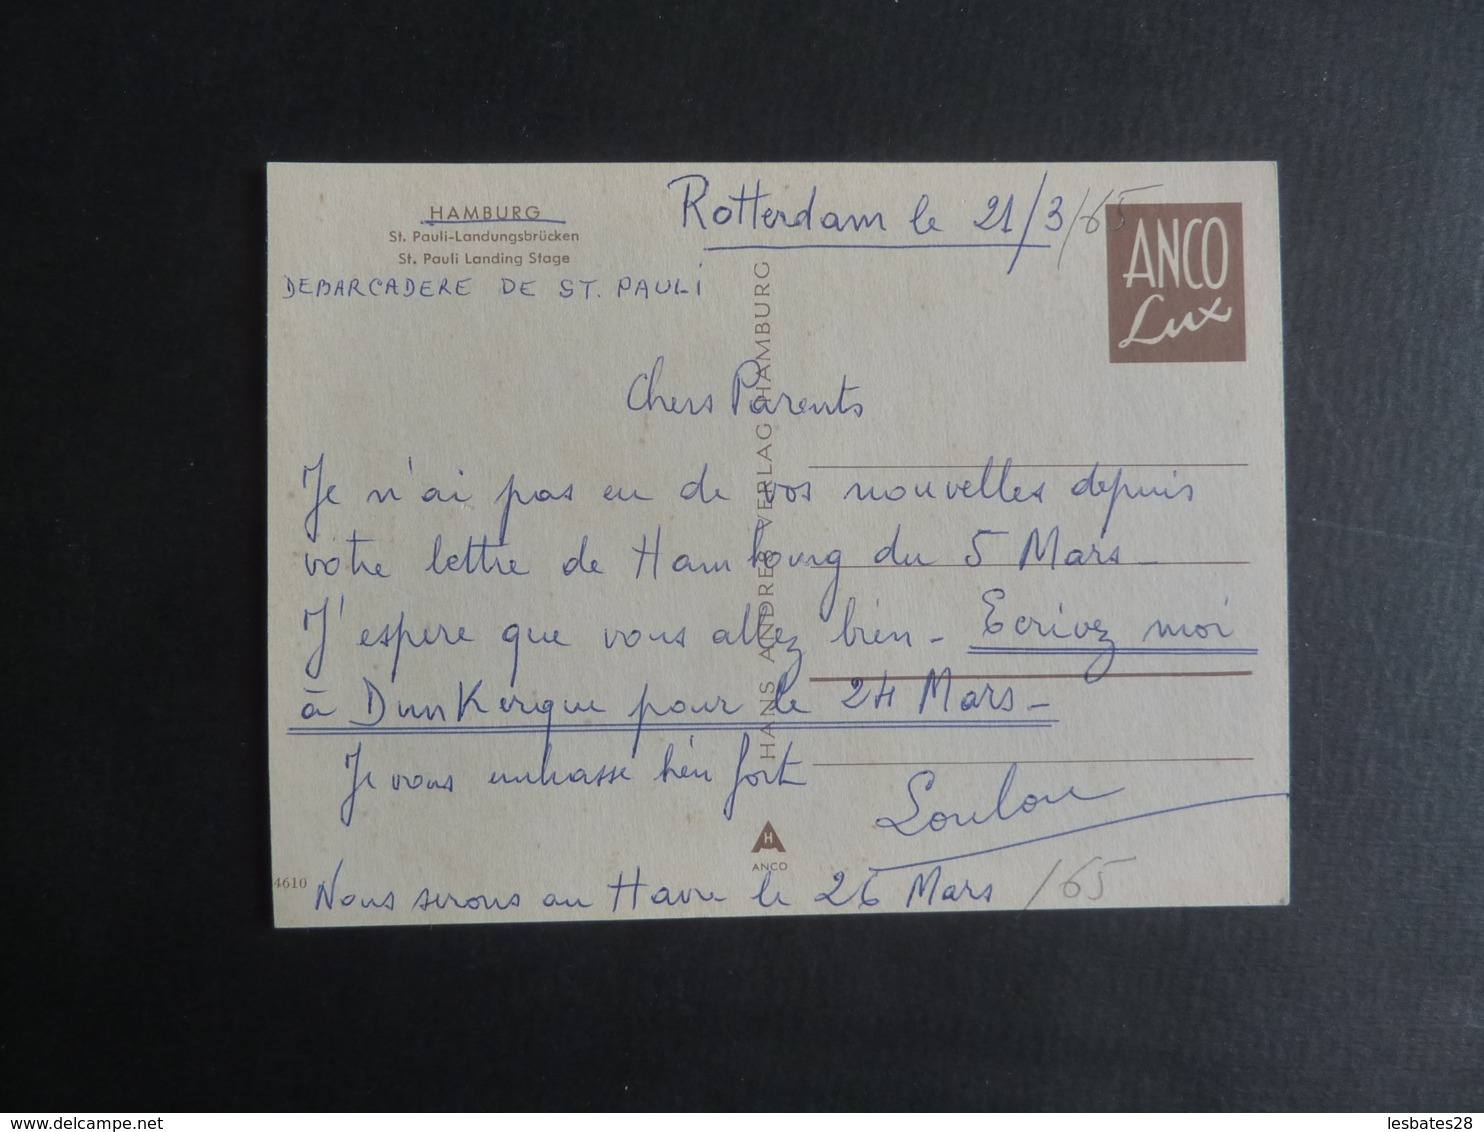 HAMBURG
St. Pauli-Landungsbrücken
St. Pauli Landing Stage
DEBARCADERE DE ST. PAULI
Rotterdam le 21/3/65
ANCO
Lux
HANS ANDRES VERLAG HAMBURG
Chers Parents
Je n'ai pas eu de vos nouvelles depuis
votre lettre de Hambourg du 5 Mars_
J'espere que vous allez bien_ Ecrivez moi
à Dunkerque pour le 24 Mars_
Je vous embrasse bien fort
Loulou
H
ANCO
4610
Nous serons au Havre le 26 Mars /65
delcampe.net
lesbates28